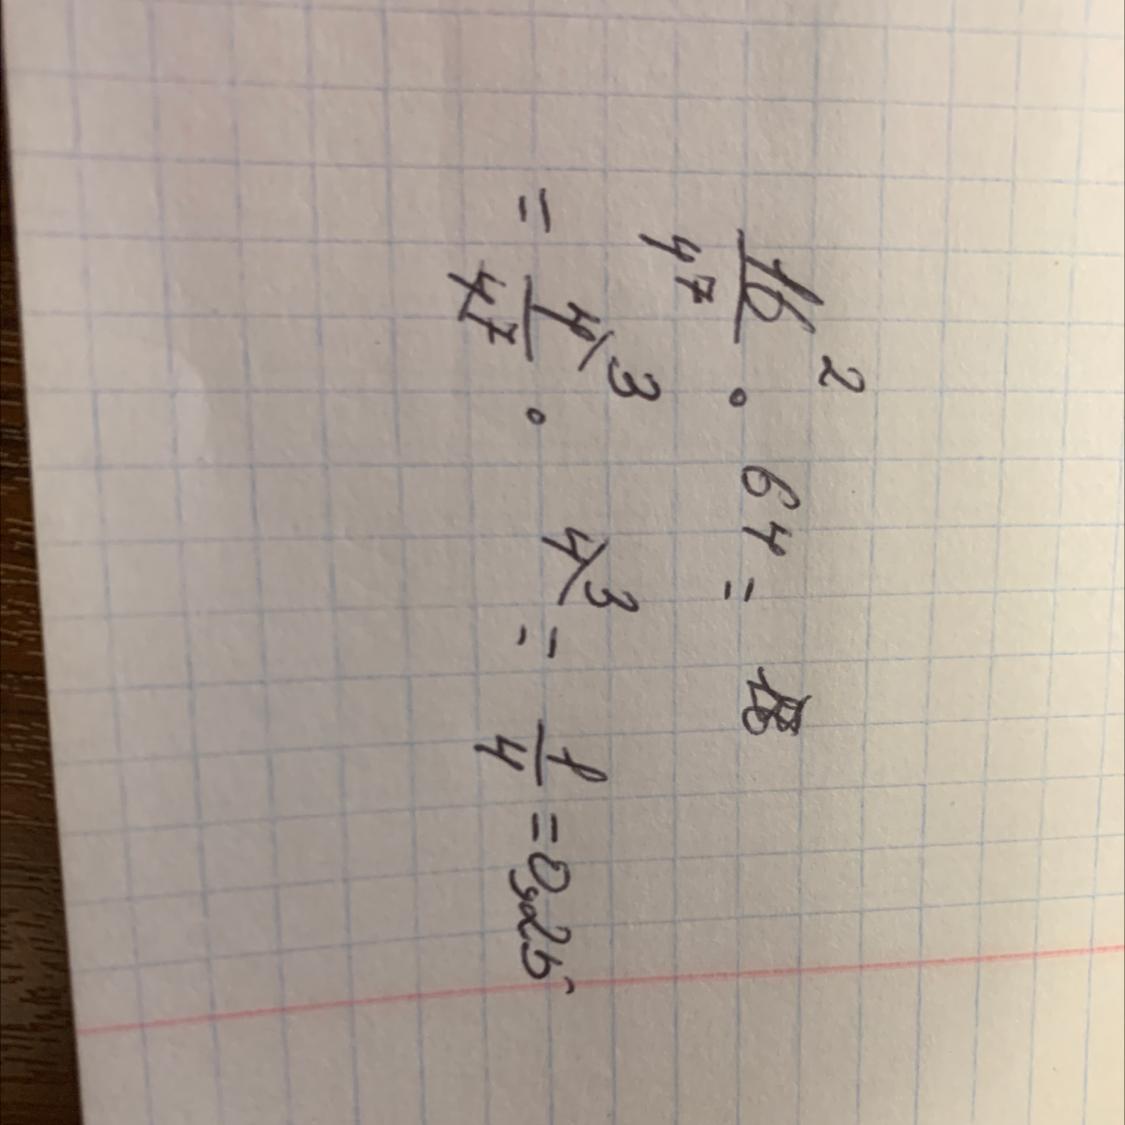 16² / 4⁷ · 64 =
= 4³ / 4⁷ · 4³ = 1/4 = 0,25